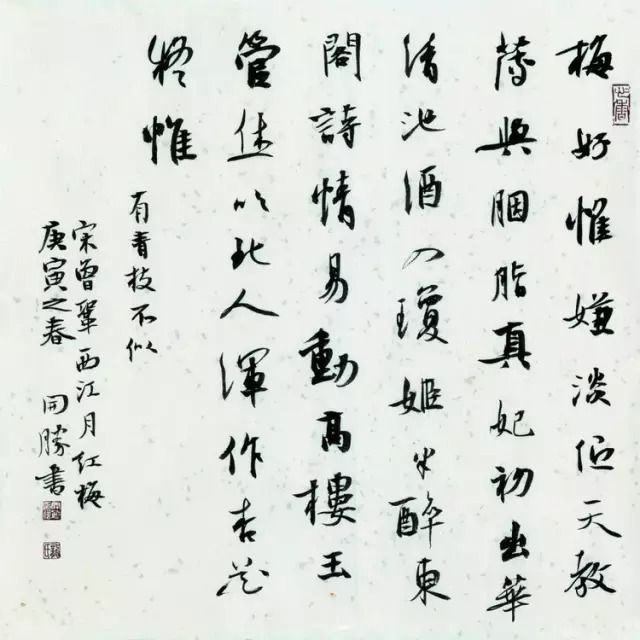 梅好惟嫌淡伫天教
薄與胭脂真妃初出華
清池酒入瓊姬半醉東
閣詩情易動高樓玉
管休吹北人渾作杏花
疑惟
有青枝不似
宋曾鞏西江月紅梅
庚寅之春 勝書